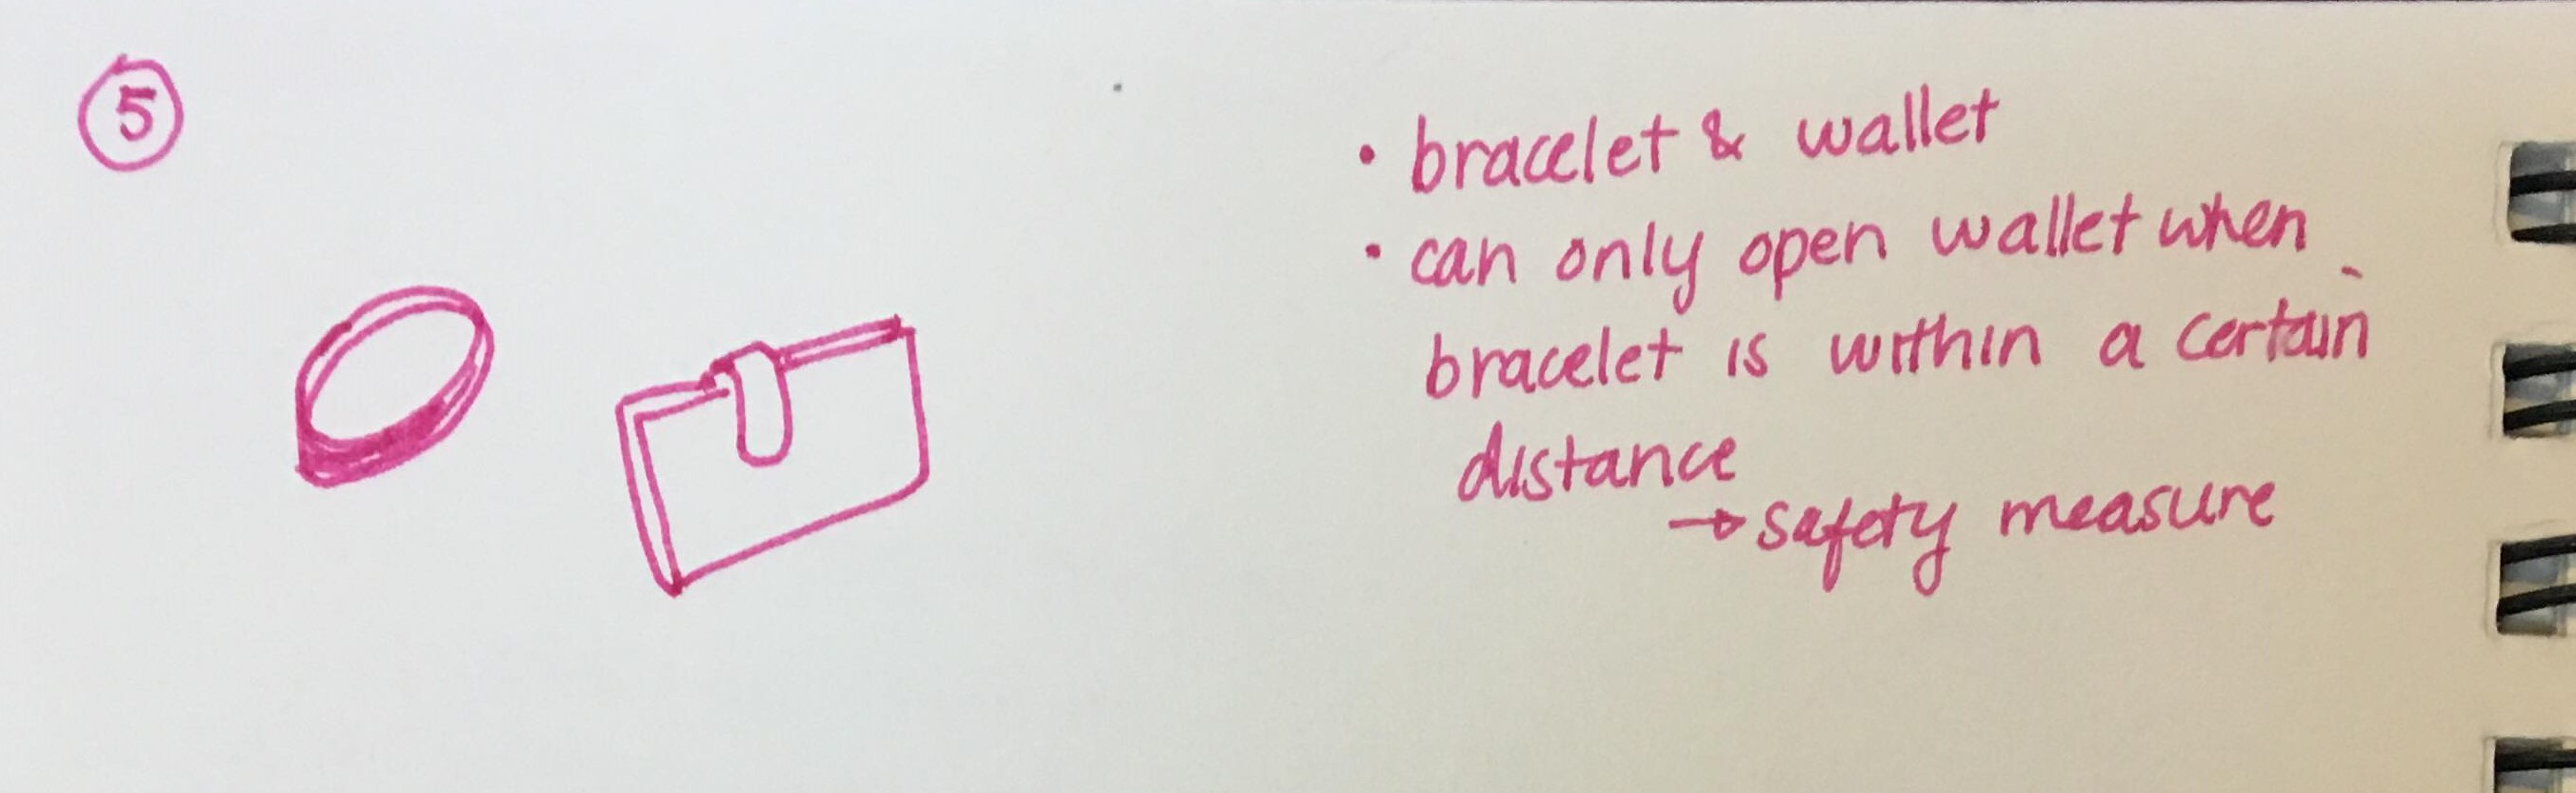 5
• bracelet & wallet
• can only open wallet when
bracelet is within a certain
distance
→ safety measure